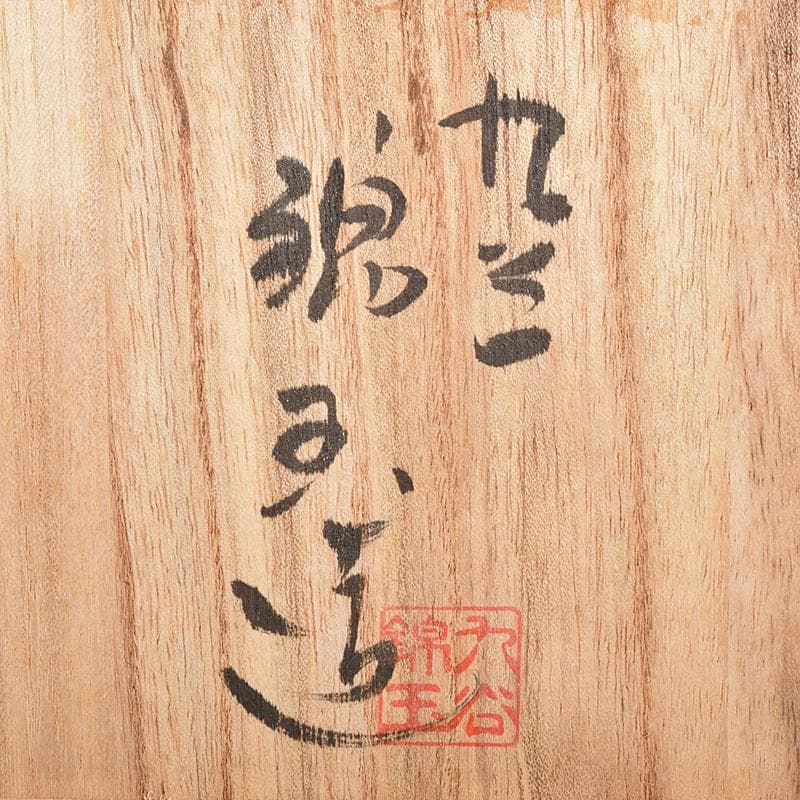 九谷
錦玉造
九谷
錦玉